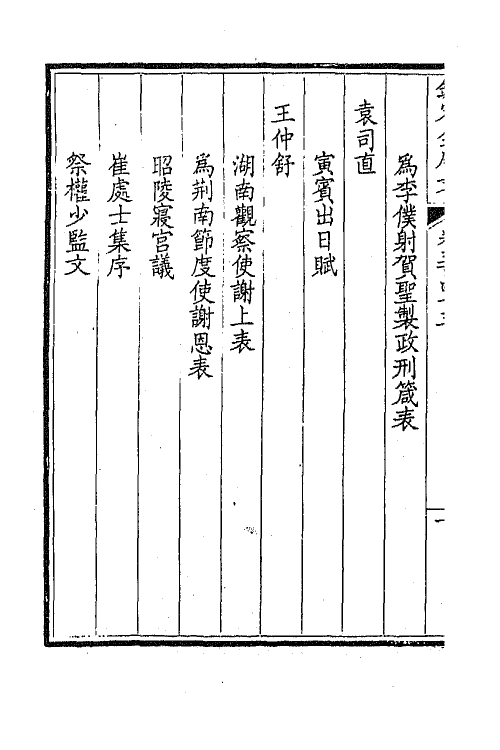 爲李僕射賀聖製政刑箴表
袁司直
寅賓出日賦
王仲舒
湖南觀察使謝上表
爲荆南節度使謝恩表
昭陵寢宫議
崔處士集序
祭權少監文